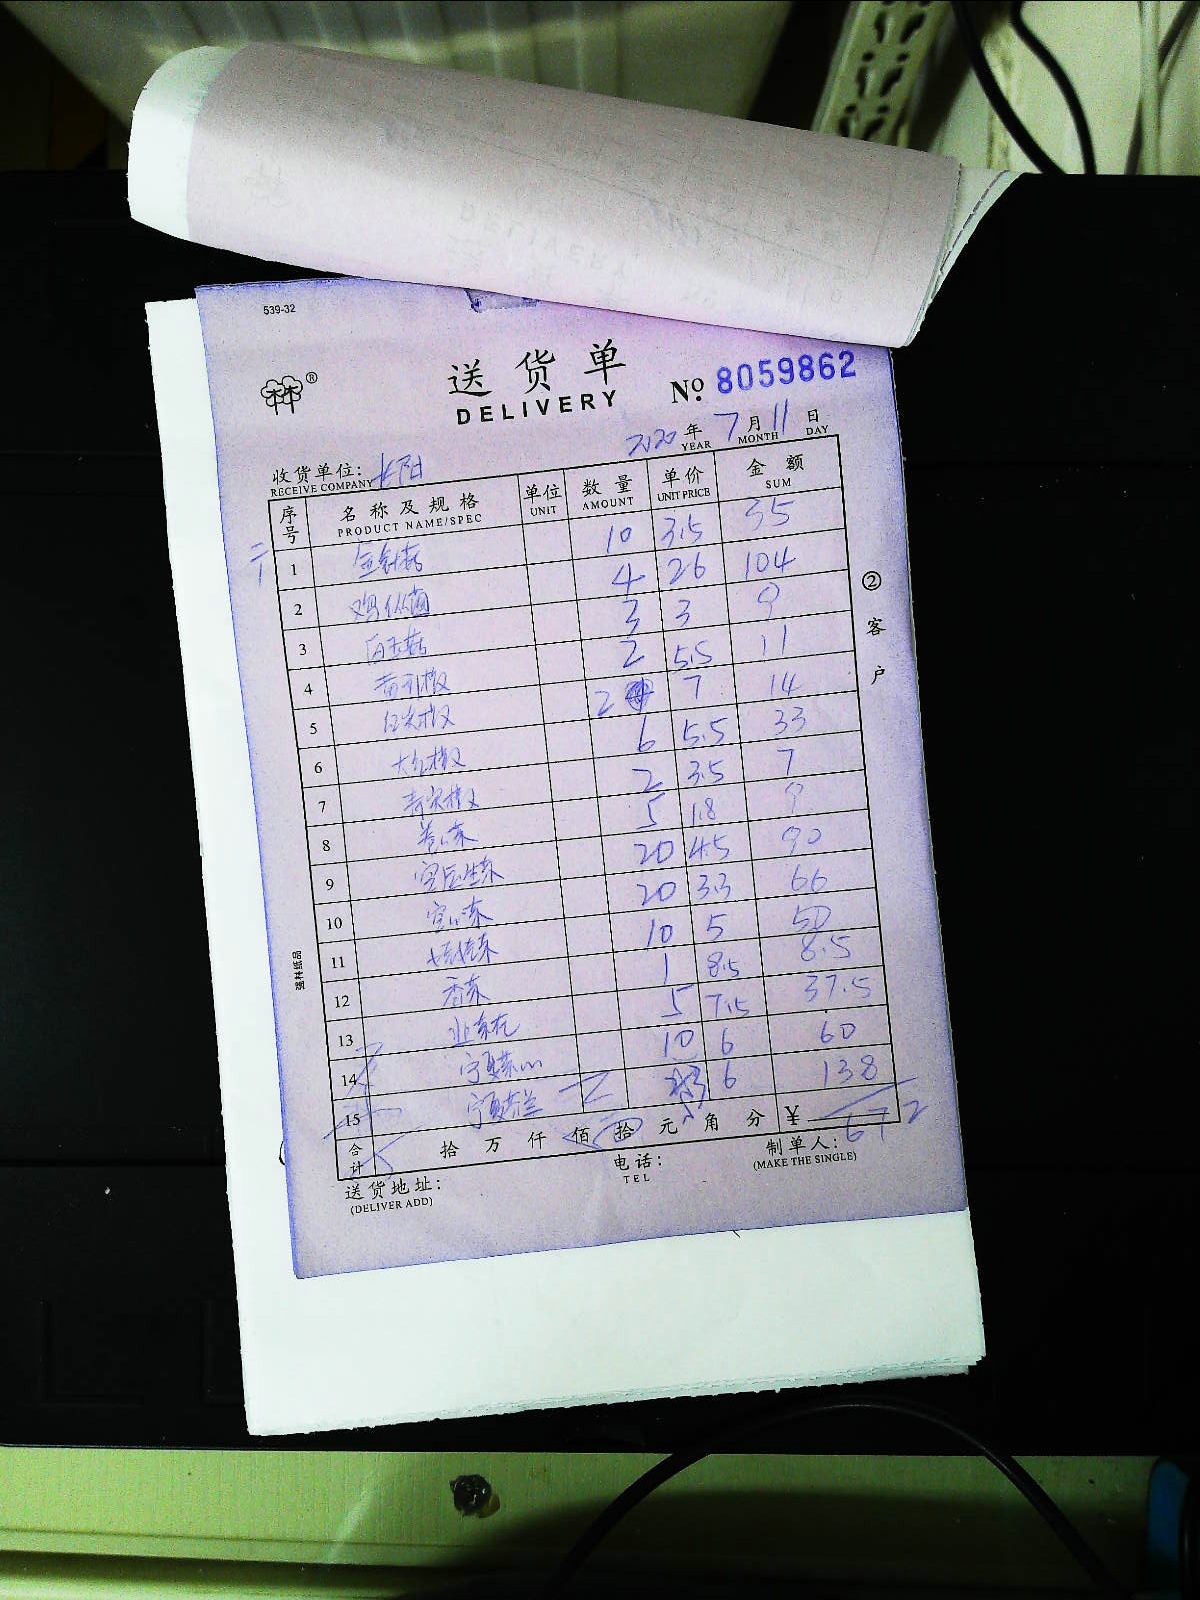 539-32
送货单
DELIVERY
№ 8059862
2020年 7月 11日
YEAR MONTH DAY
收货单位:
RECEIVE COMPANY
序号 名称及规格 单位 数量 单价 金额
PRODUCT NAME/SPEC UNIT AMOUNT UNIT PRICE SUM
1 金针菇 10 3.5 35
2 鸡纵菌 4 26 104
3 白玉菇 3 3 9
4 2 5.5 11
5 2 7 14
6 大红椒 6 5.5 33
7 2 3.5 7
8 5 1.8 9
9 20 4.5 90
10 空心菜 20 3.3 66
11 10 5 50
12 香菜 1 8.5 8.5
13 5 7.5 37.5
14 宁夏菜心 10 6 60
15 宁夏芥兰 23 6 138
合计 拾 万 仟 佰 拾 元 角 分 ¥ 672
送货地址:
(DELIVER ADD)
电话:
TEL
制单人:
(MAKE THE SINGLE)
②客户
强林纸品